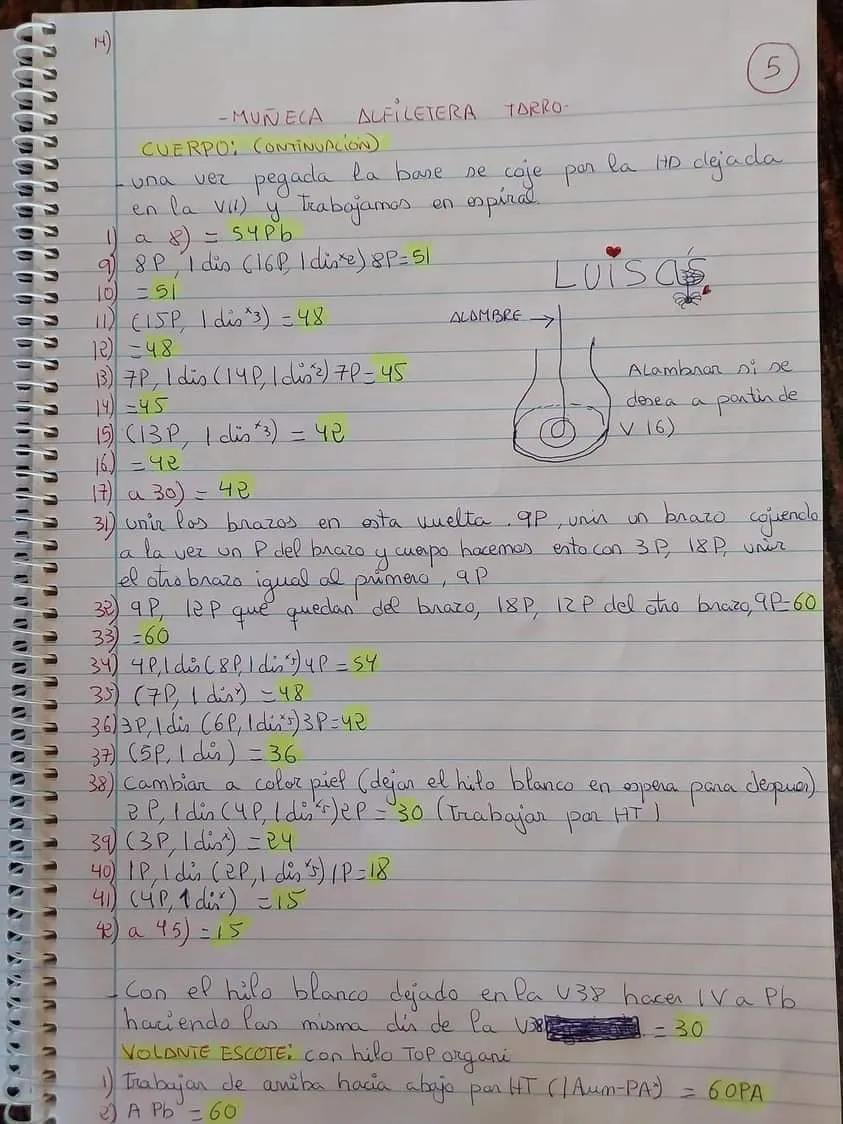 14)
5
-MUÑECA ALFILETERA TARRO-
CUERPO: (CONTINUACIÓN)
- una vez pegada la base se coje por la HD dejada
en la V11) y trabajamos en espiral.
1) a 8) = 54Pb
9) 8P, 1 dis (16P, 1 dis x2) 8P = 51
10) = 51
11) (15P, 1 dis x3) = 48
12) = 48
13) 7P, 1 dis (14P, 1 dis x2) 7P = 45
14) = 45
15) (13P, 1 dis x3) = 42
16) = 42
17) a 30) = 42
LUISCAS
ALAMBRE →
Alambrar si se
desea a partir de
V 16)
31) unir los brazos en esta vuelta. 9P, unir un brazo cojiendo
a la vez un P del brazo y cuerpo hacemos esto con 3P, 18P, unir
el otro brazo igual al primero, 9P
32) 9P, 12P que quedan del brazo, 18P, 12P del otro brazo, 9P = 60
33) = 60
34) 4P, 1 dis (8P, 1 dis x5) 4P = 54
35) (7P, 1 dis*) = 48
36) 3P, 1 dis (6P, 1 dis x5) 3P = 42
37) (5P, 1 dis) = 36
38) Cambiar a color piel (dejar el hilo blanco en espera para despues)
2P, 1 dis (4P, 1 dis x5) 2P = 30 (Trabajar por HT)
39) (3P, 1 dis*) = 24
40) 1P, 1 dis (2P, 1 dis x5) 1P = 18
41) (4P, 1 dis*) = 15
42) a 45) = 15
- Con el hilo blanco dejado en la V38 hacer 1V a Pb
haciendo las misma dis de la V38 = 30
VOLANTE ESCOTE: con hilo TOP organi
1) Trabajar de arriba hacia abajo por HT (1 Aum-PA*) = 60PA
2) A Pb = 60